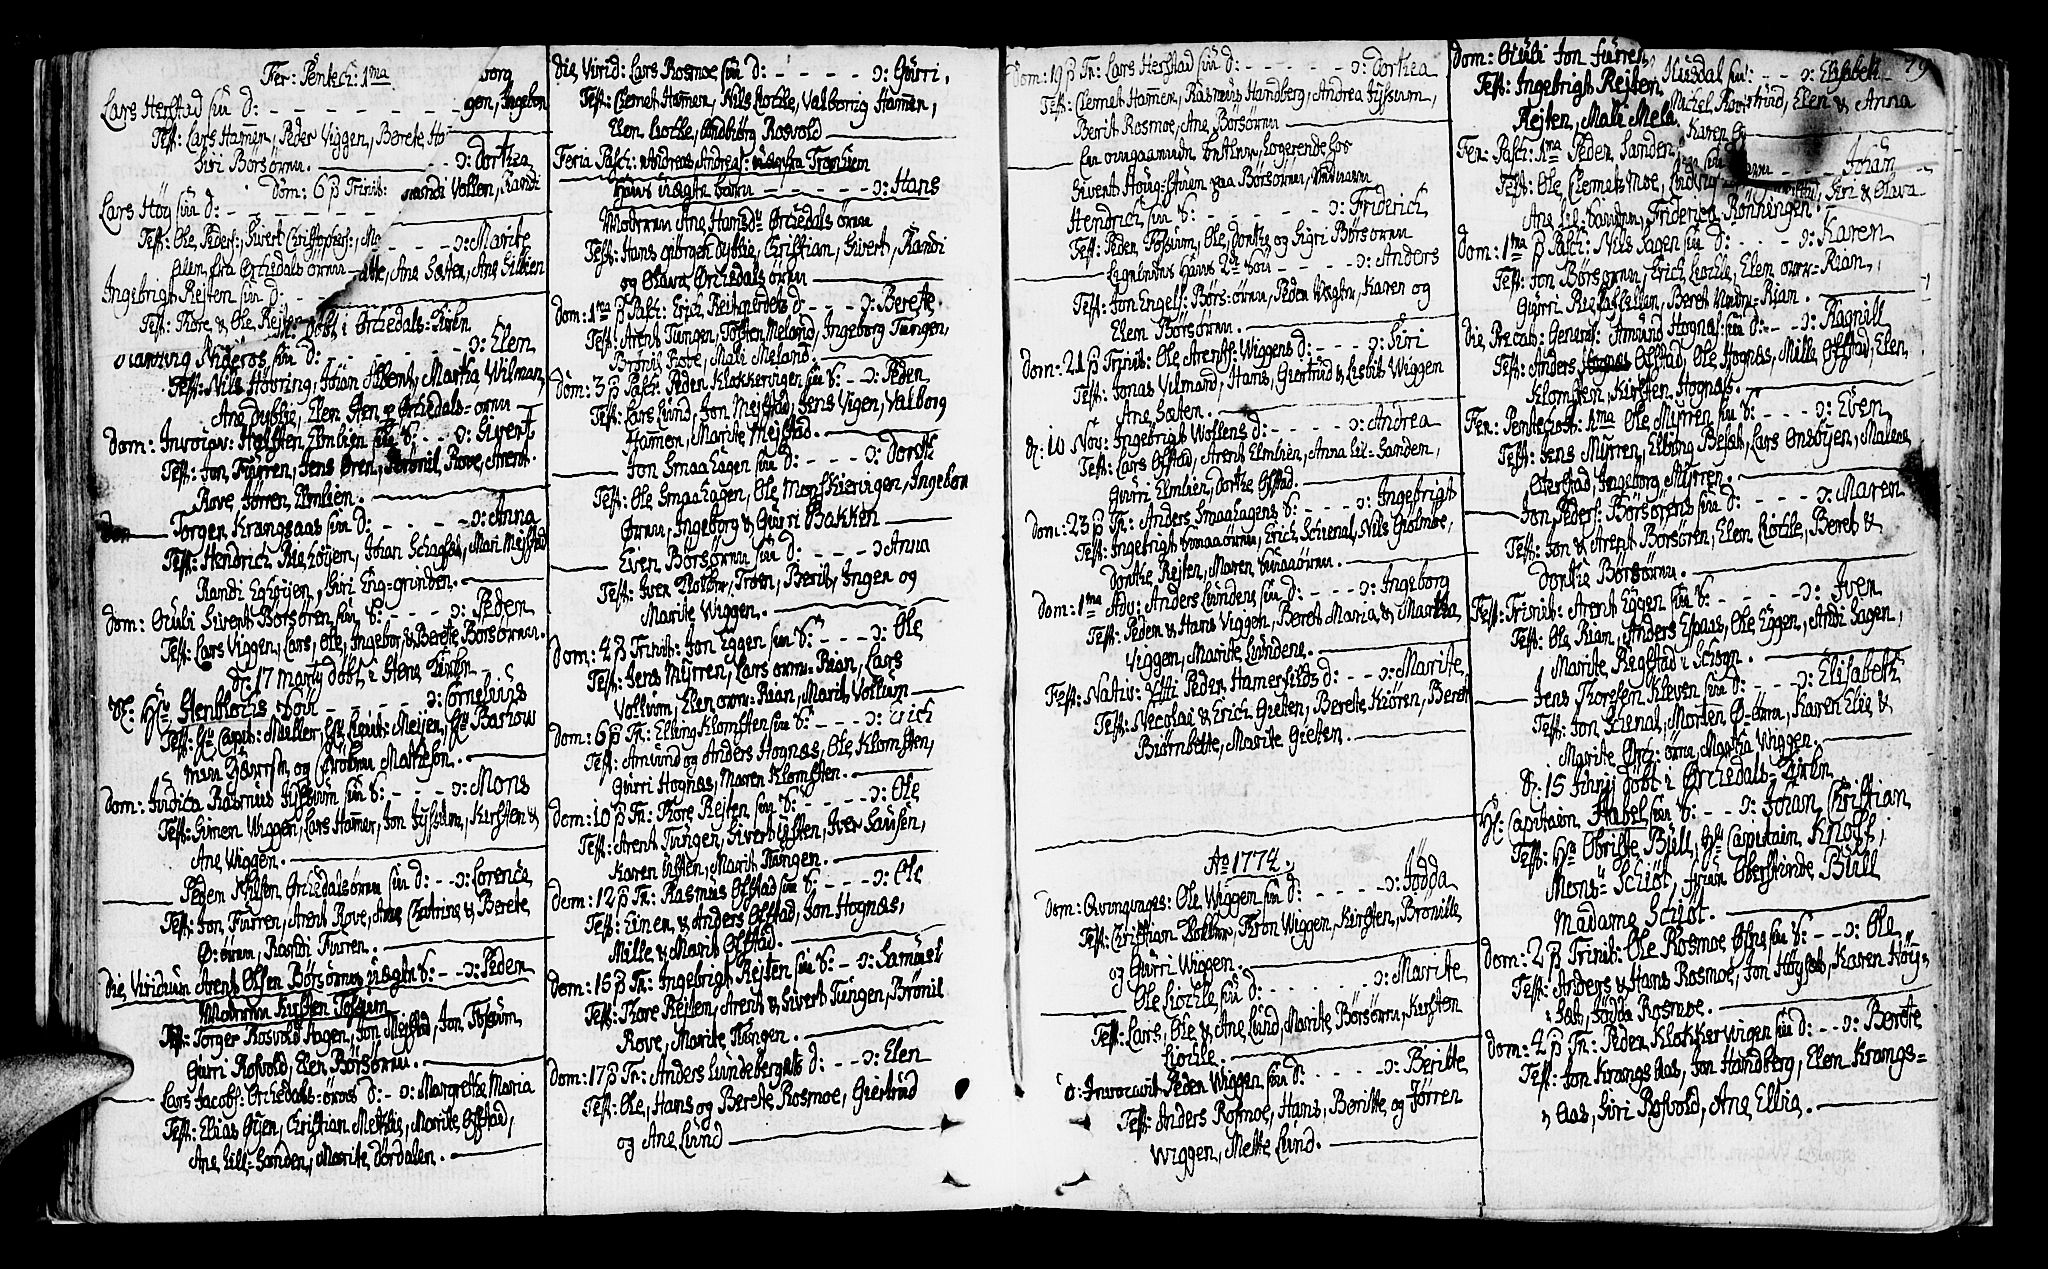 Fer: Pentech: 1ma
Lars Herstad sin d: - - - - -
Test: Lars Hamen, Peder Viggen, Berete
Siri Börsörnn.
Dom: 6 p Trinit:
Lars Höy sin d: - - - - -
Test: Ole Peders:, Sivert Christophers:,
Elen fra Orchedals örnn
Ingebrigt Rejten sin d: - -
Test: Thore, & Ole Rejten
org
gen, Ingebor
ɔ: Dorthea
Randi Vollen, Randi
- - - ɔ: Marite
Ane Sæter, Ane Lilien
döbt i Orchedals-Kirken
sin d: - - - - - ɔ: Elen
Test: Nils Hövring, Johan Albent, Martha Vilman,
Ane Dyblie, Elen Sten & Orchedals-örnn
Dom: Invocav: Halsten Elmlien sin S: - - ɔ: Sivert
Test: Jon Furren, Jens Ören, Brönil Rove, Arent
Rove, Jörren Elmlien.
Dom Torgen Krangsaas sin d: - - - - ɔ: Anna
Test: Hendrich Riaehöyem, Johan Schagstad, Mari Mejstad
Randi Eghöyen, Siri Lia-grinden.
Dom: Oculi Sivert Börsören sin S: - - - ɔ: Peder
Test: Lars Viggen, Lars, Ole, Ingebor, & Berete Börsörnn.
d: 17 Marty döbt i Stene Kirken
Hr Stenkochs Sön - - - - - ɔ: Cornelius
Test: Hr Capit: Müller, Hr Leut: Meijer, Hr Barlow
og Mathison.
Dom: Judica Rasmus Jyssum sin S: - - - ɔ: Mons
Test: Simen Wiggen, Lars Hammer, Jon Jyssum, Kirsten &
Ane Wiggen.
Peder Nilsen Orchedalsörnn sin d: - - ɔ: Lorentza
Test: Jon Furren, Arent Rove, Ane Catrine & Berete
Ö: örnn, Randi Furren.
Die Viridium Arent Olsen Börsörnn uægte S: - - ɔ: Peder
Moderen Kirsten Tossum
Test: Torger Rosvold Hagen, Jon Mejstad, Jon Tossum,
Gurri Rosvold, Elen Börsörnn.
Lars Jacobs: Orchedals-örens d: - ɔ: Margrethe Maria
Test: Elias Öyen, Christian Methlie, Marite Ofstad,
Ane Lill-Sanden, Marite Dördalen.
Die Virid: Lars Rosmoe sin d: - - - - - ɔ: Gurri,
Test: Clemet Hamen, Nils Kiochle, Valborig Hamen,
Elen Kiochle, Ingbiörg Rosvold
Feria Pasch: Andreas Andreas: uægte Tronhiem
hans uægte barn - - - - - ɔ: Hans
Moderen Ane Hansdr Orchedals örnn
Test: Hans Giörgen Dyblie, Christian, Sivert, Randi
og Olava Orchedals örnn
Dom: 1ma p Pasch: Erich Reitgierdets d - - - ɔ: Berete
Test: Arent Tungen, Tosten Meland, Ingeborg Tungen,
Brönil Rove, Mali Meland.
Dom: 3 p Pasch: Peder Klokkervigen sin S: - - ɔ: Peder
Test: Lars Lund, Jon Mejstad, Jens Vigen, Valborg
Hamen, Marite Mejstad.
Jon Smaahagen sin d: - - - ɔ: Dorethe
Test: Ole Smaahagen, Ole Monskieringen, Ingebor
Örnn, Ingeborg & Gurri Bakken
Even Börsörnn sin d: - - - - ɔ: Anna
Test: Iver Troen, Berit, Inger og
Marite Wiggen.
Dom: 4 p Trinit: Jon Eggen sin S: - - - ɔ: Ole
Test: Jens Myrren, Lars över-Rian, Lars
Vollum, Elen över-Rian, Marit Vollum
Dom: 6 p Tr: Elling Klomsten sin S: - - - - ɔ: Erich
Test: Amund og Anders Hognæs, Ole Klomsten,
Gurri Hognæs, Maren Klomsten.
Dom: 10 p Tr: Thore Rejten sin S: - - - ɔ: Ole
Test: Arent Tungen, Sivert Lysten, Iver Sausen,
Karen Lysten, Marit Tungen.
Dom: 12 p Tr: Rasmus Ofstad sin S: - - - ɔ: Ole
Test: Einer & Anders Ofstad, Jon Hognæs,
Mille & Marit Ofstad.
Dom: 15 p Tr: Ingebrigt Rejten sin S: - - ɔ: Samuel
Test: Thore Rejten, Arent & Sivert Tungen, Brönil
Rove, Marite Tungen.
Dom: 17 p Tr: Anders Lundebergets d: - - - ɔ: Elen
Test: Ole, Hans og Berete Rosmoe, Giertrud
og Ane Lund
Dom: 19 p Tr: Lars Herstad sin d: - - - - ɔ: Dorthea
Test: Clemet Hamen, Rasmus Handberg, Andrea Jyssum,
Berit Rosmoe, Ane Börsörnn
En omgaaende logerende hos
Sivert Houg-Ehren paa Börsörnn,
Hendrich sin S: - - - - - ɔ: Friderich
Test: Peder Tossum, Ole, Dorthe og Sigri Börsörnn
Ligeledes hans 2de Sön - - - - - ɔ: Anders
Test: Jon Engels: Börs-örnn, Peder Karen og
Elen Börsörnn.
Dom: 21 p Trinit: Ole Arents: Wiggens d: - - - ɔ: Siri
Test: Jonas Vilmand, Hans, Giertrud & Lisbit Wiggen
Ane Sæter.
d: 10 Nov: Ingebrigt Wollens d: - - - - - ɔ: Andrea
Test: Lars Ofstad, Arent Elmlien, Anna Lil-Sanden,
Gurri Elmlien, Dorthe Ofstad.
Dom: 23 p Tr: Anders Smaahagens S: - - - ɔ: Ingebrigt
Test: Ingebrigt Smaaörnn, Erich Schienal, Nils Giölmoe,
Dorthe Rejten, Maren Smaaörnn.
Dom: 1ma Adv: Anders Lundens sin d: - - - ɔ: Ingeborg
Test: Peder & Hans Viggen, Beret Maria & Martha
Viggen, Marite Lunden.
Fest: Nativ: Xti Peder Hamersilds d: - - - ɔ: Marite
Test: Necolai & Erich Gieten, Berete Kiören, Beret
Biörnbette, Marite Gieten.
Ao 1774.
Dom: Qvinquages: Ole Wiggen sin d: - - - - ɔ: Jödda
Test: Christian Thron Wiggen, Kirsten, Brönille
og Gurri Wiggen.
Ole Kiochle sin d: - - - - - ɔ: Marite
Test: Lars, Ole & Ane Lund, Marite Börsörnn, Kirsten
Kiochle.
D: Invocavit Peder Wiggen sin d: - - - - ɔ: Beritte
Test: Anders Rosmoe, Hans, Beritte og Jörren
Wiggen, Mette Lund.
Dom: Oculi Jon Furren
Test: Ingebrigt Rejten
Rejten, Mali Mela
Husdal sin: - - ɔ: Elisabeth 79
Michel Elen & Anna
Karen
Fer: Pasch: 1ma Peder Sanden - - - Johan
Test: Ole Clemetsmoe, Siri & Olava
Ane Lil-Sanden, Friderich Rönningen.
Dom: 1ma p Pasch: Nils Hagen sin d: - - - - ɔ: Karen
Test: Jon Börsörnn, Erich Kiochle, Elen över-Rian,
Gurri Beret Nedre-Rian.
Die Precat: General: Amund Hognæs: sin d: - - ɔ: Ragnill
Test: Anders Ofstad, Ole Hognæs, Mille Ofstad, Elen
Klomsten, Kirsten Hognæs.
Fer: Pentecost: 1ma Ole Myrren sin S: - - - ɔ: Even
Test: Jens Myrren, Elling Lars Onsöyen, Malene
Ofstad, Ingeborg Myrren.
Jon Peders: Börsörens sin d: - - - - ɔ: Maren
Test: Jon & Arent Börsören, Elen Kiöchle, Beret &
Dorthe Börsörnn.
Fest: Trinit: Arent Eggen sin S: - - - - - ɔ: Iver
Test: Ole Rian, Anders Espaas, Ole Eggen, Andi Hagen,
Marite Ringstad i Schogn.
Jens Thoresen Kleven sin d: - - - - ɔ: Elisabeth
Test: Jon Schienal, Morten Ö-öra, Karen Elie &
Marite Orc: örnn, Martha Wiggen.
d: 15 Junij döbt i Orchedals-Kirken
Hr Capitain Habel sin S: - - - ɔ: Johan Christian
Test: Hr Obriste Bull, Hr Capitain Knoff,
Monsr Schiöt, Frue Oberstinde Bull
Madame Schiöt.
Dom: 2 p Trinit: Ole Rosmoe Öens sin S: - - ɔ: Ole
Test: Anders & Hans Rosmoe, Jon Höyset, Karen Höy-
set, Jödda Rosmoe.
Dom: 4 p Tr: Peder Klokkervigen sin d: - - ɔ: Berete
Test: Jon Krangsaas, Jon Handberg, Elen Krangs=
aas, Siri Rosvold, Ane Ellia.